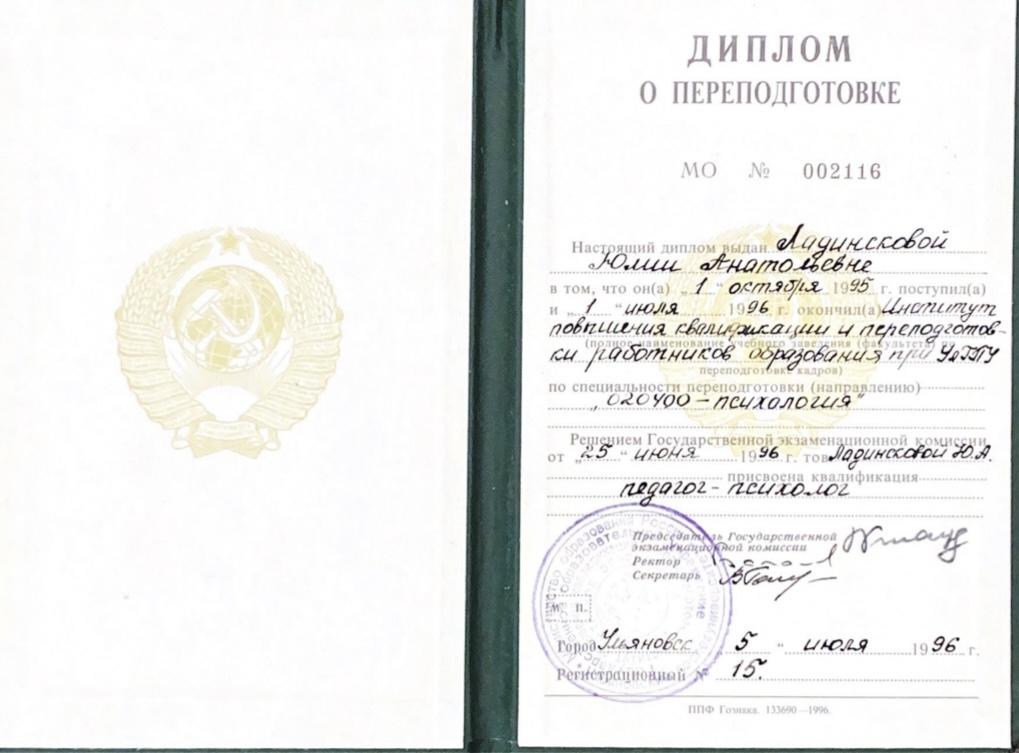 ДИПЛОМ
О ПЕРЕПОДГОТОВКЕ
МО № 002116
Настоящий диплом выдан Ладинсковой
Юлии Анатольевне
в том, что он(а) „1“ октября 1995 г. поступил(а)
и „1“ июля 1996 г. окончил(а) Институт
повышения квалификации и переподготов-
(полное наименование учебного заведения (факультета) по
ки работников образования при УлГПУ
переподготовке кадров)
по специальности переподготовки (направлению)
„020400-психология“
Решением Государственной экзаменационной комиссии
от „25“ июня 1996 г. тов Ладинсковой Ю.А.
присвоена квалификация
педагог-психолог
Председатель Государственной
экзаменационной комиссии
Ректор
Секретарь
М. П.
Город Ульяновск 5 “ июля 1996 г.
Регистрационный № 15.
ППФ Гознака. 133690—1996.